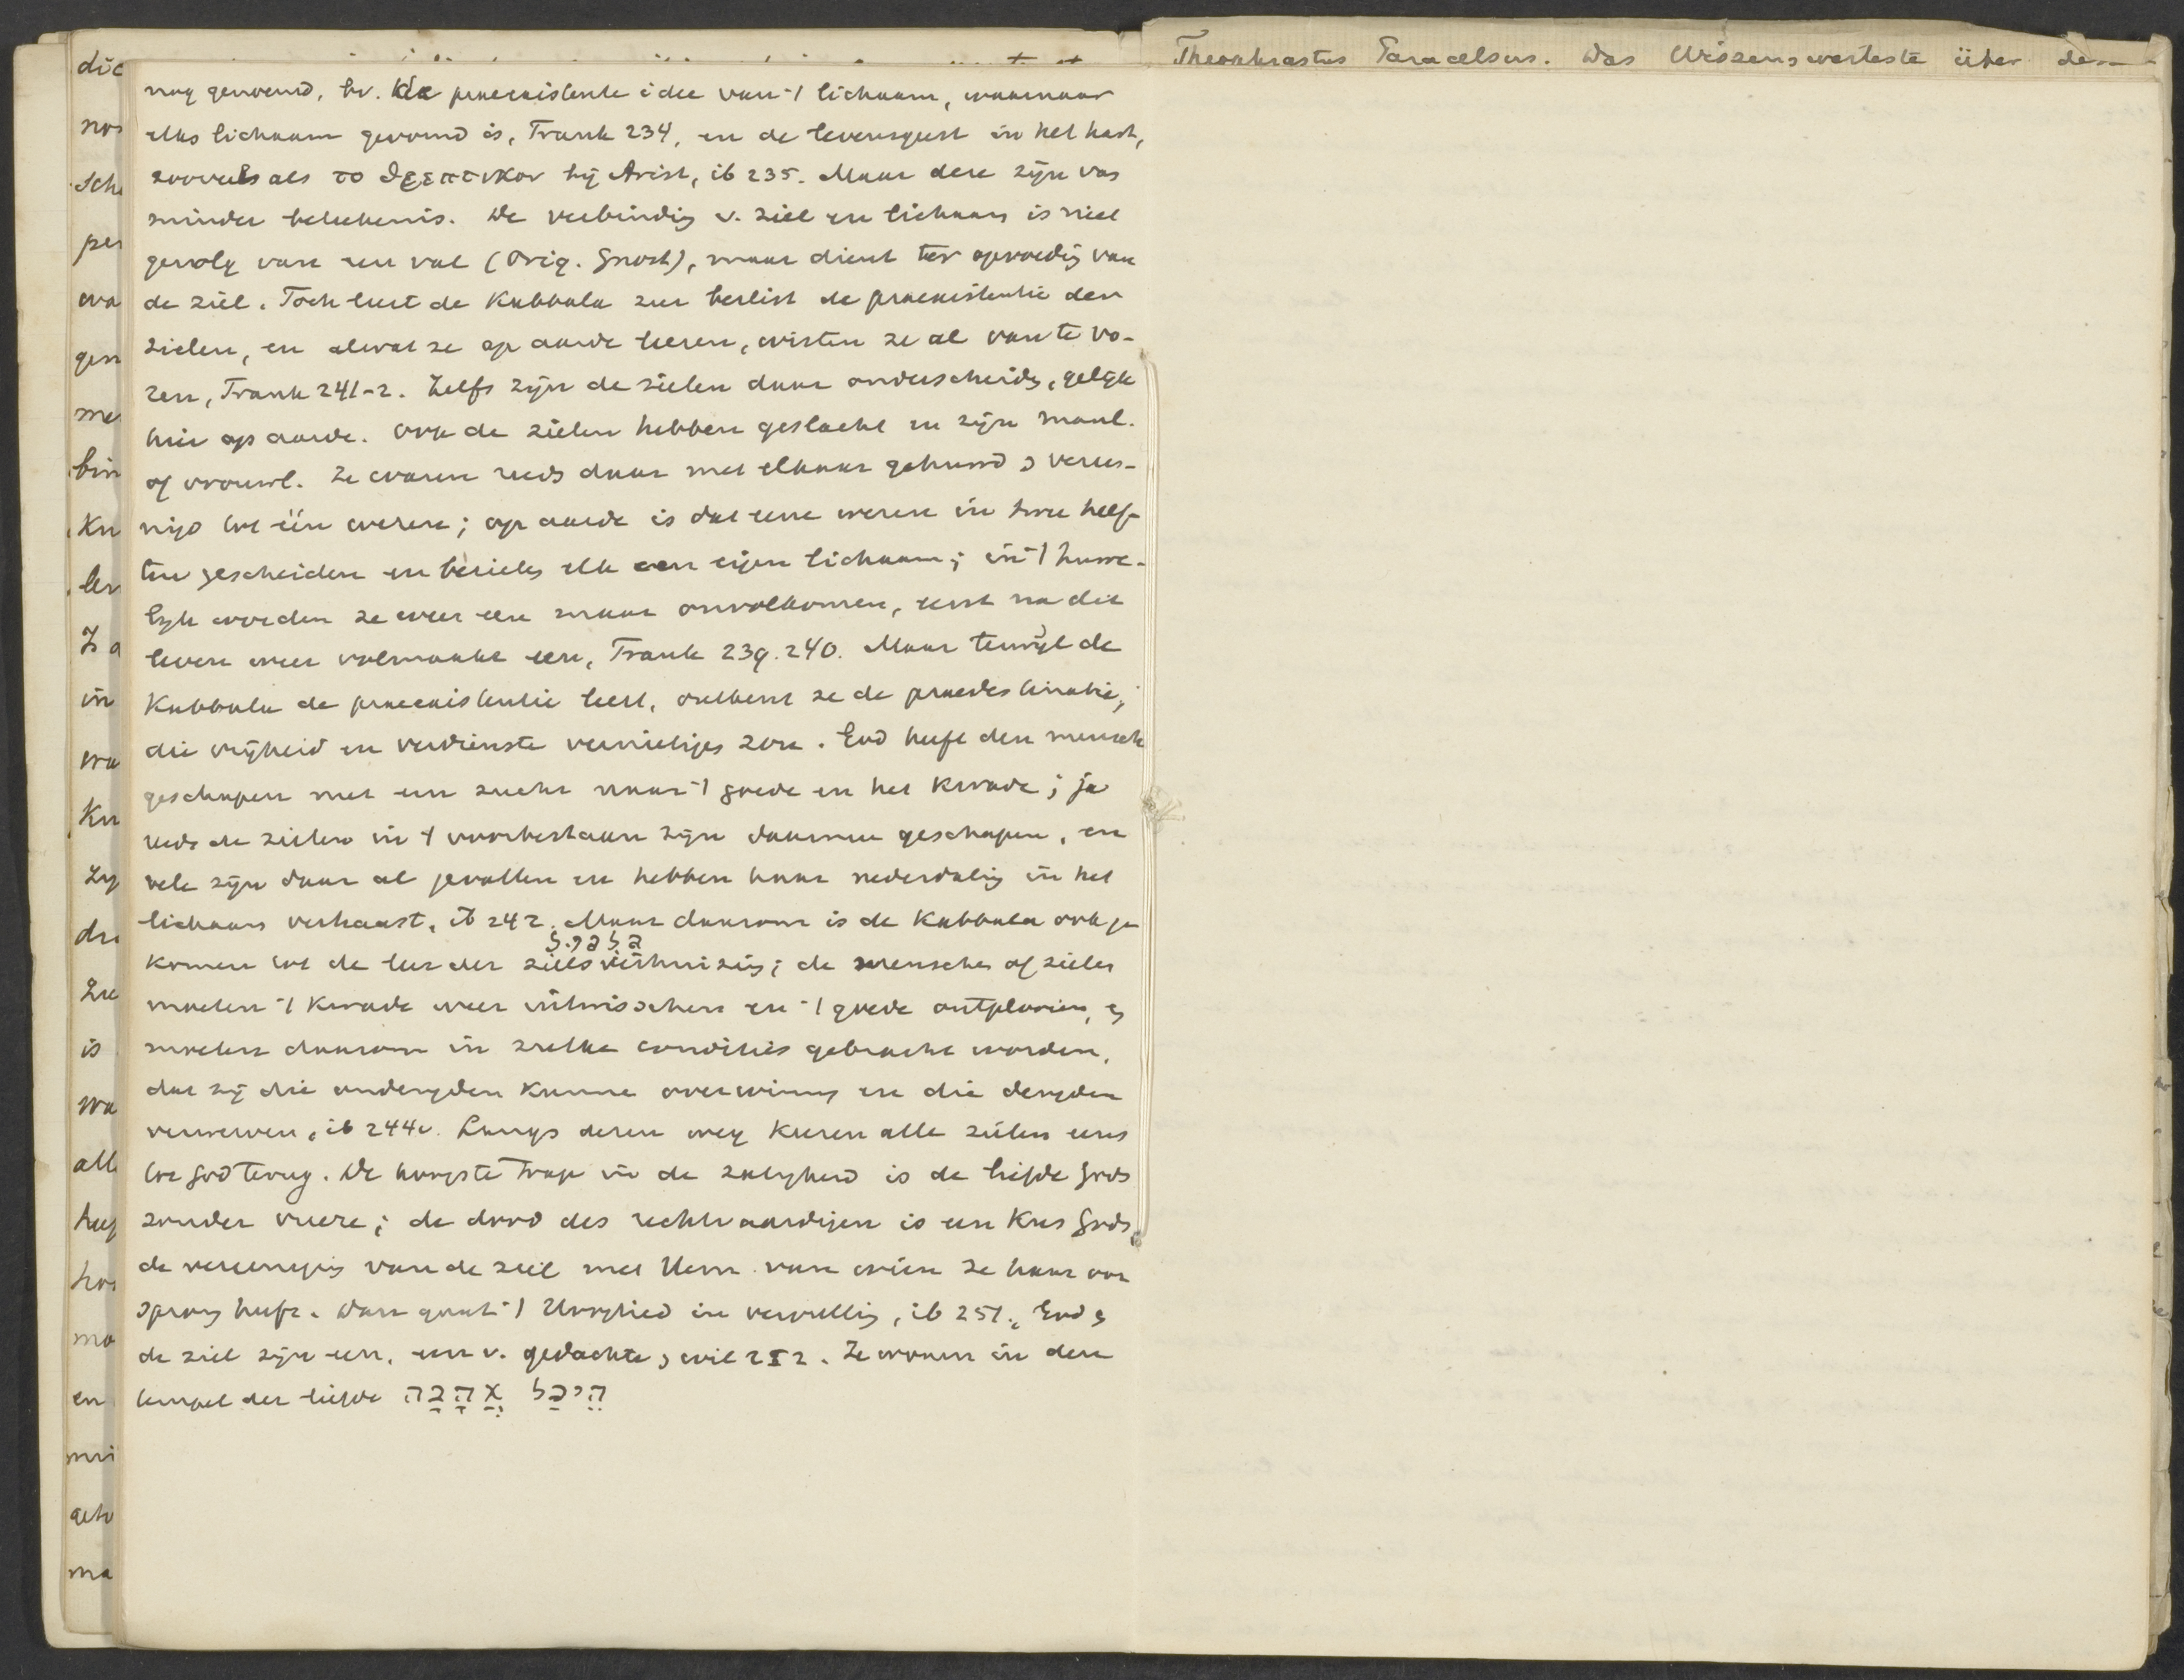 nog genoemd, bv. de praeexistente idee van 't lichaam, waarnaar
elks lichaam gevormd is, Frank 234, en de levensgeest in het hart,
zooveel als το ϑρεπτικον bij Arist, ib 235. Maar deze zijn van
minder beteekenis. De verbinding v. ziel en lichaam is niet
gevolg van een val (Orig. Gnost), maar dient ter opvoeding van
de ziel. Toch leert de Kabbala zeer beslist de praeexistentie der
zielen, en alwat ze op aarde leeren, wisten ze al van te vo-
ren, Frank 241-2. Zelfs zijn de zielen daar onderscheiden, gelijk
hier op aarde. Ook de zielen hebben geslacht en zijn manl.
of vrouwl. Ze waren reeds daar met elkaar gehuwd & veree-
nigd tot één wezen; op aarde is dat eene wezen in twee helf-
ten gescheiden en bezielen elk een eigen lichaam; in 't huwe-
lijk worden ze weer een maar onvolkomen, eerst na dit
leven weer volmaakt een, Frank 239.240. Maar terwijl de
Kabbala de praeexistentie leert, ontkent ze de praedestinatie,
die vrijheid en verdienste vernietigen zou. God heeft den mensch
geschapen met een zucht naar 't goede en het kwade; ja
reeds de zielen in 't voorbestaan zijn daarmee geschapen, en
vele zijn daar al gevallen en hebben haar nederdaling in het
lichaam verhaast, ib 242. Maar daarom is de Kabbala ook ge
komen tot de leer der zielsverhuizing; de menschen of zielen
גלגול
moeten 't kwade weer uitwisschen en 't goede ontplooien, en
moeten daarom in zulke condities gebracht worden,
dat zij die ondeugden kunnen overwinnen en die deugden
verwerven, ib 244v. Langs dezen weg keeren alle zielen eens
tot God terug. De hoogste trap in de zaligheid is de liefde Gods
zonder vreeze; de dood des rechtvaardigen is een Kus Gods,
de vereeniging van de ziel met Hem van wien ze haar oor
sprong heeft. Dan gaat 't Hooglied in vervulling, ib 251. God en
de ziel zijn een, een v. gedachte & wil 252. Ze wonen in den
tempel der liefde הֵיכַל אַהֲבָה
Theophrastus Paracelsus. Das Wissenswerteste über den
dic
nos
sch
per
wa
gen
me
bin
Kn
ler
in
wa
Kn
zij
is
wa
alle
heef
mo
en
ma